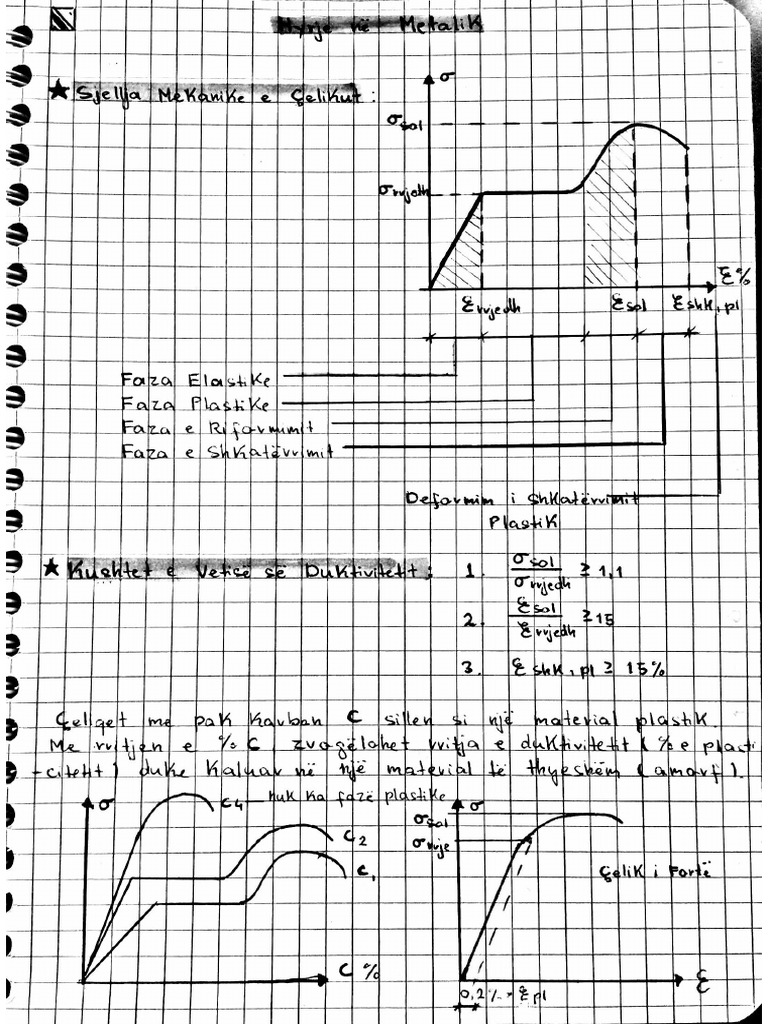 Hyrje në Metalik
★ Sjellja Mekanike e Çelikut:
σ
σsol
σrrjedh
Ɛ%
Ɛrrjedh Ɛsol Ɛshk,pl
Faza Elastike
Faza Plastike
Faza e Riforcimit
Faza e Shkatërrimit
Deformim i Shkatërrimit
Plastik
★ Kushtet e Vetisë së Duktivitetit:
1. σsol/σrrjedh ≥ 1,1
2. Ɛsol/Ɛrrjedh ≥ 15
3. Ɛshk,pl ≥ 15%
Çeliqet me pak Karban C sillen si një material plastik.
Me rritjen e % C, zvogëlohet rritja e duktivitetit (% e plasti
-citetit) duke Kaluar në një material të thyeshëm (amorf).
σ C4 nuk ka fazë plastike
C2
C1
C %
σ
σsol
σrrje
Çelik i Fortë
0,2% = Ɛpl
Ɛ